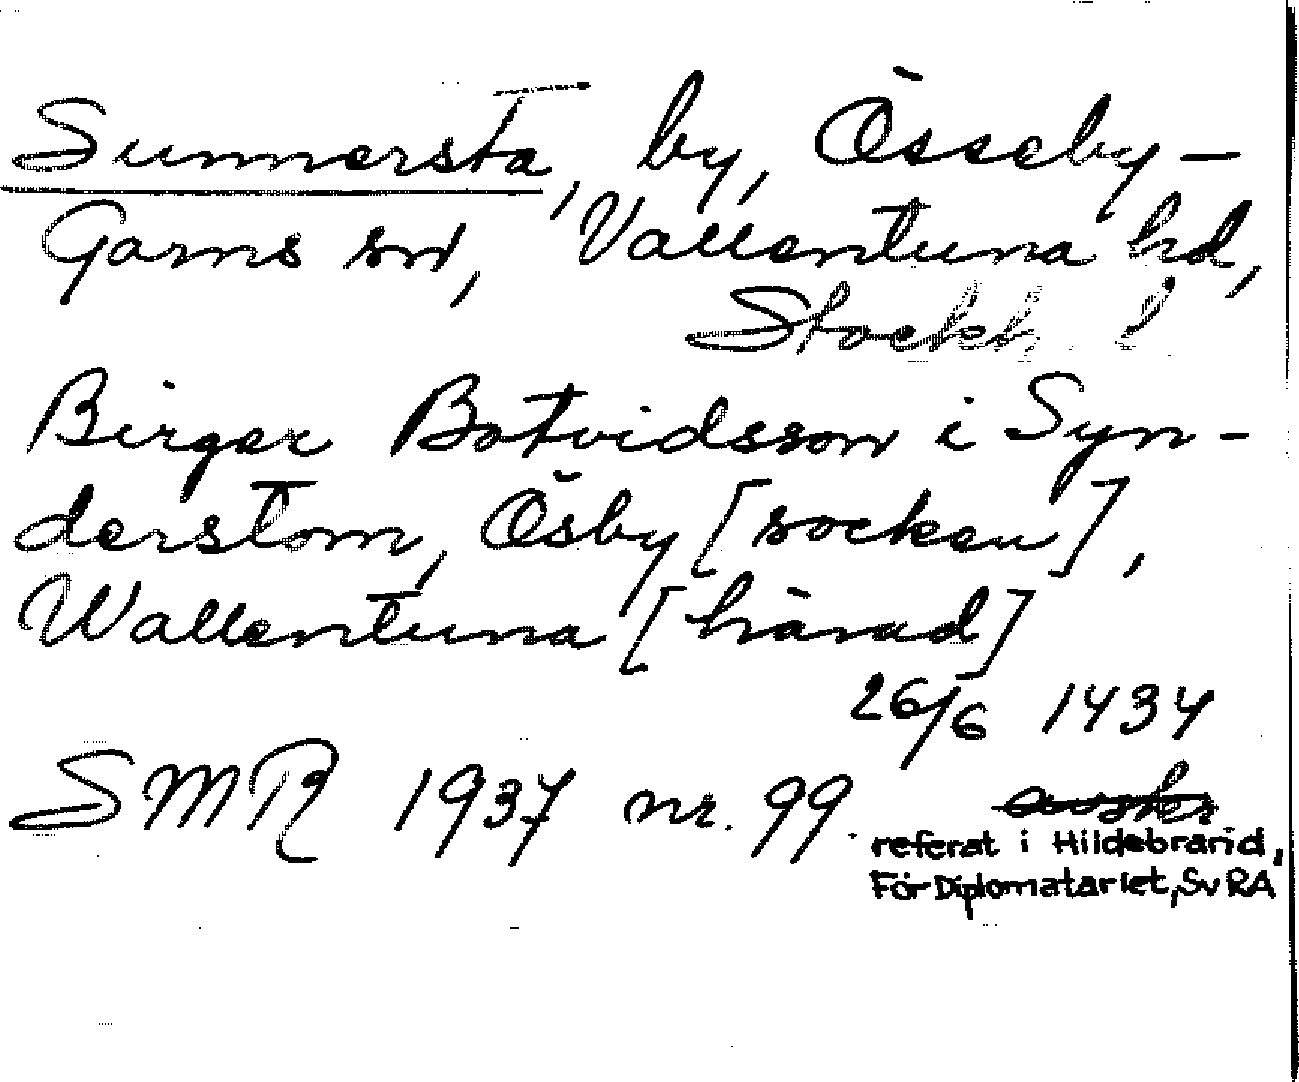 Sunnersta, by, Össeby-
Garns sn, Vallentuna hd,
Stockh l
Birger Botvidsson i Syn-
derstom, Ösby [socken],
Wallentuna [härad]
26/6 1434
SMR 1937 nr. 99
referat i Hildebrand,
För Diplomatariet, Sv RA